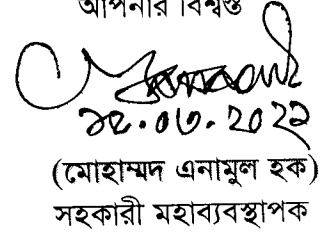 আপনার বিশ্বস্ত
(মোহাম্মদ এনামুল হক)
সহকারী মহাব্যবস্থাপক